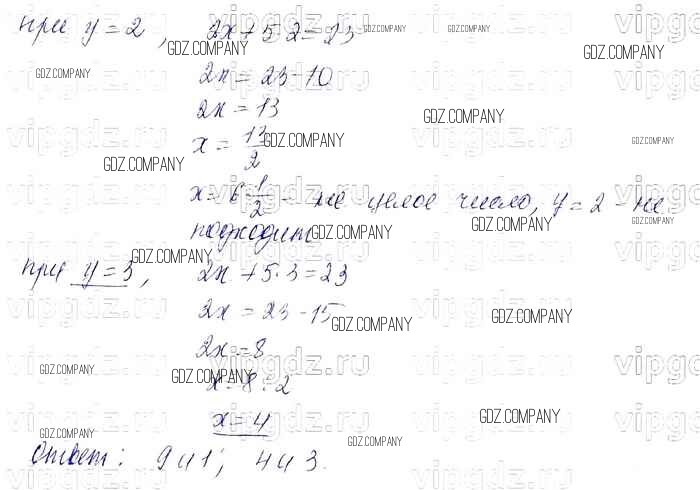 при y = 2, 2x + 5·2 = 23
2x = 23 - 10
2x = 13
x = 13/2
x = 6 1/2 - не целое число, y = 2 - не
подходит
при y = 3, 2x + 5·3 = 23
2x = 23 - 15
2x = 8
x = 8 : 2
x = 4
Ответ: 9 и 1; 4 и 3.
GDZ.COMPANY
vipgdz.ru